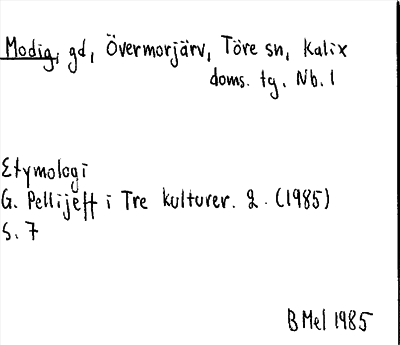 Modig, gd, Övermorjärv, Töre sn, Kalix
doms. tg. Nb. l
Etymologi
G. Pellijeff i Tre kulturer. 2. (1985)
S. 7
B Mel 1985